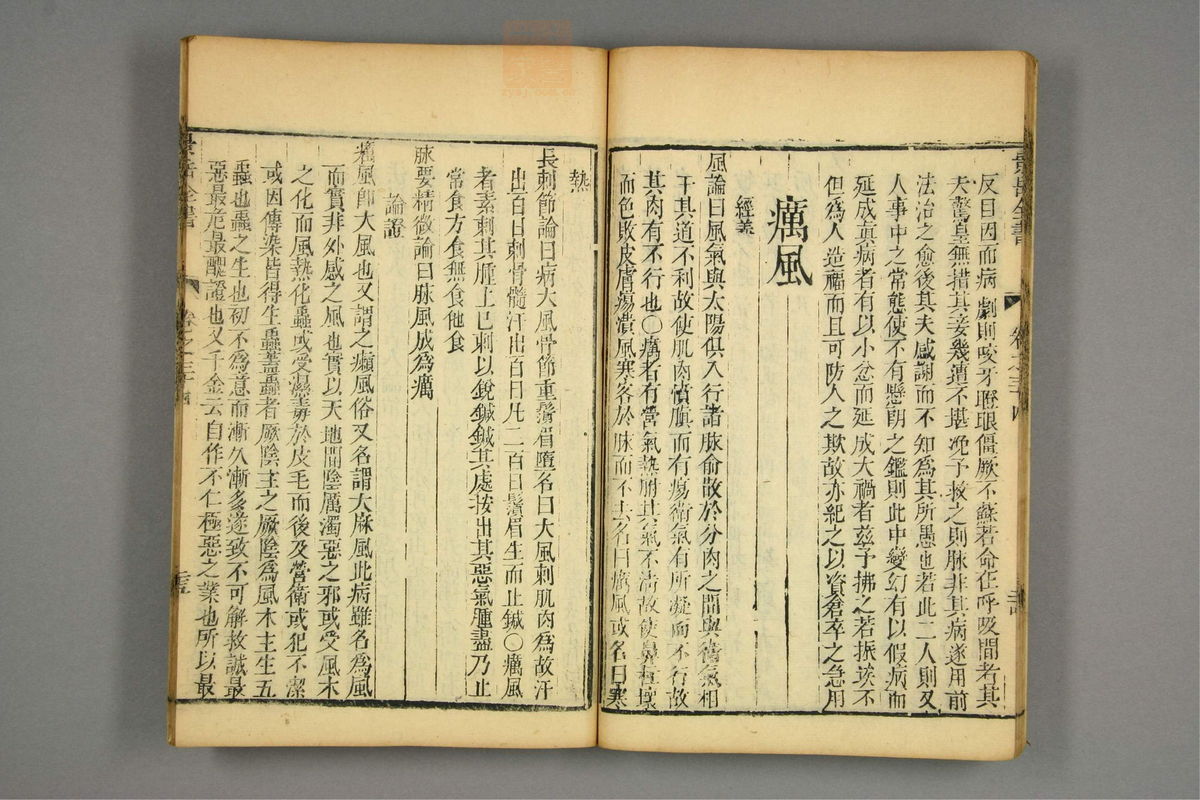 反目因而病劇則咬牙瞪眼僵厥不蘇若命在呼吸間者其
夫驚皇無措其妾幾薄不堪浼予救之則脉非其病遂用前
法治之愈後其夫感謝而不知為其所愚也若此二人則又
人事中之常態使不有懸朗之鑑則此中變幻有以假病而
延成真病者有以小忿而延成大禍者兹予拂之若振埃不
但為人造福而且可防人之欺故亦紀之以資倉卒之急用
癘風
經義
風論曰風氣與太陽俱入行諸脉俞散於分肉之間與衛氣相
干其道不利故使肌肉憤䐜而有瘍衛氣有所凝而不行故
其肉有不仁也〇癘者有營氣熱胕其氣不清故使鼻柱壞
而色敗皮膚瘍潰風寒客於脉而不去名曰癘風或名曰寒
景岳全書
卷之三十四
熱
長刺節論曰病大風骨節重鬚眉墮名曰大風刺肌肉為故汗
出百日刺骨髓汗出百日凡二百日鬚眉生而止鍼〇癘風
者素刺其腫上已刺以銳鍼鍼其處按出其惡氣腫盡乃止
常食方食無食他食
脉要精微論曰脉風成為癘
論證
癘風即大風也又謂之癩風俗又名謂大麻風此病雖名為風
而實非外感之風也實以天地間陰厲濁惡之邪或受風木
之化而風熱化蟲或受濕毒於皮毛而後及營衛或犯不潔
或因傳染皆得生蟲蓋蟲者厥陰主之厥陰為風木主生五
蟲也蟲之生也初不為意而漸久漸多遂致不可解救誠最
惡最危最醜證也又千金云自作不仁極惡之業也所以最
景岳全書
卷之三十四